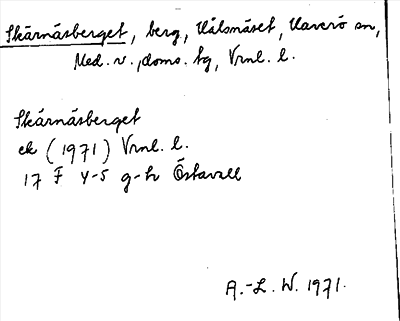 Skärnäsberget, berg, Hålsnäset, Haverö sn,
Med. v., doms. tg, Vrnl. l.
Skärnäsberget
ek (1971) Vrnl. l.
17 F 4-5 g-h Östavall
A.-L. W. 1971.